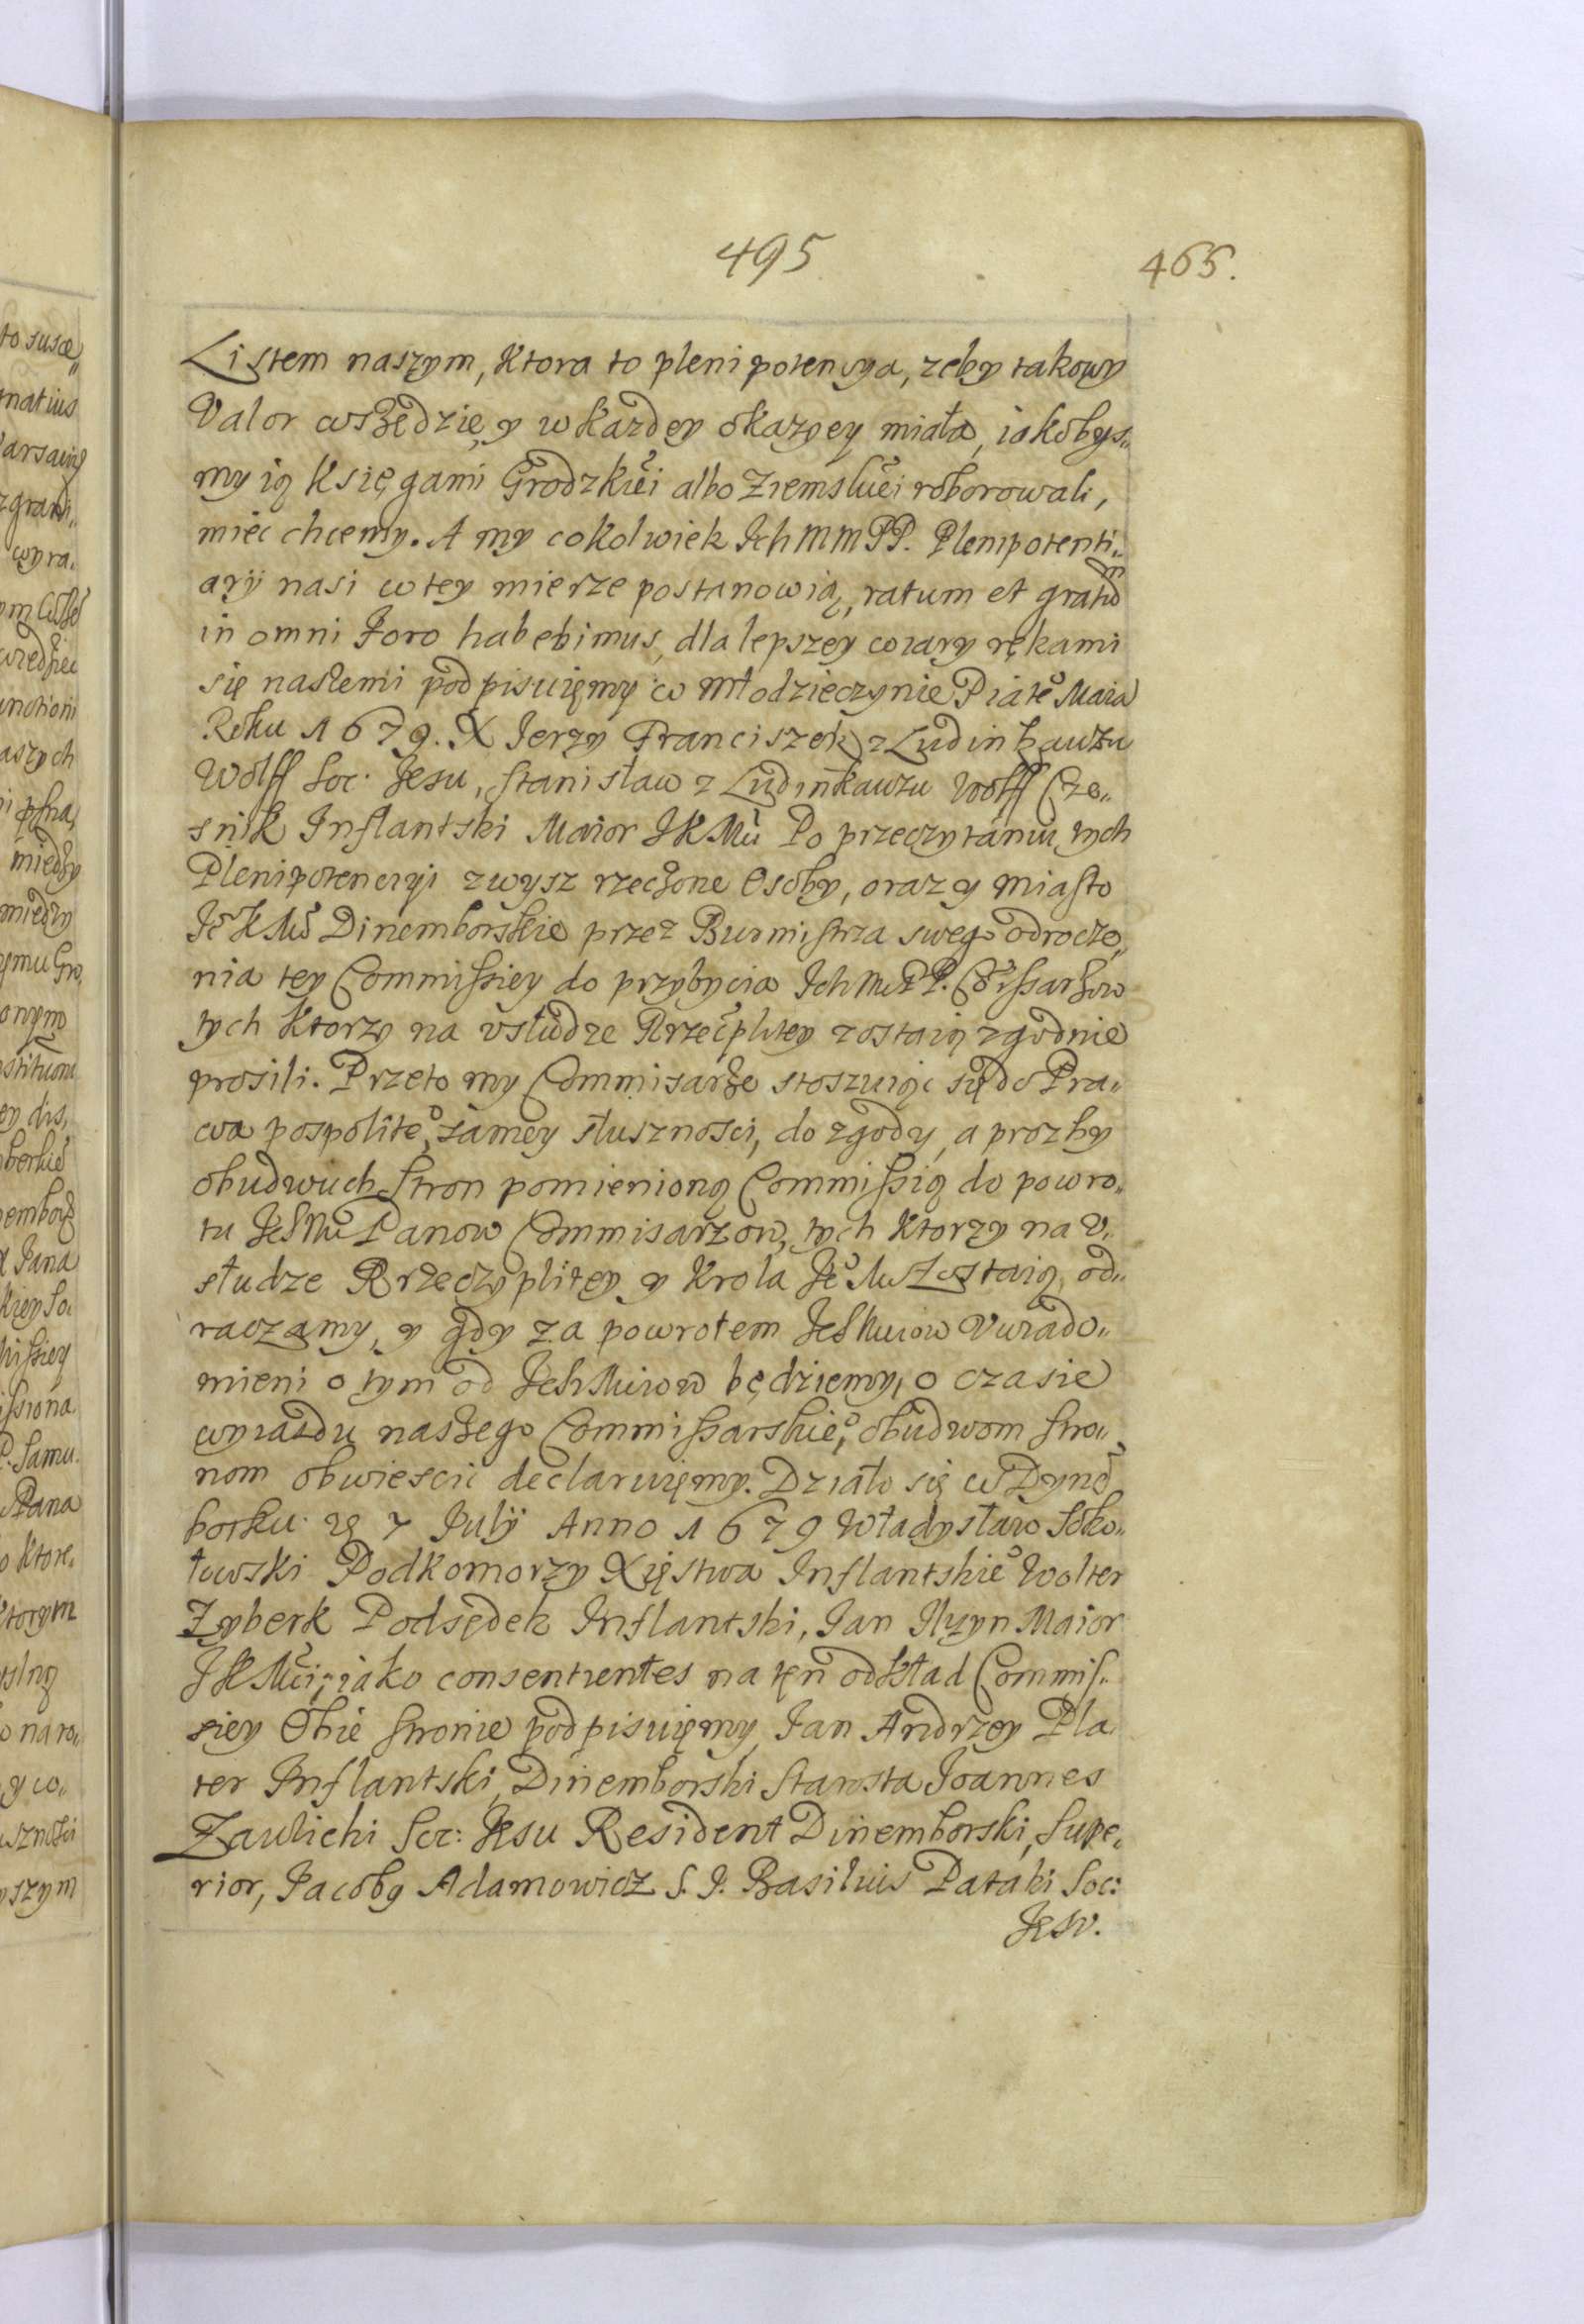 495
465.
Listem naszym, Ktora to plenipotensya, zeby takowy
Valor wszędzie, y w kazdey okazyey miała, iakobys„
my ią Księgami Grodzkiėi albo Ziemskiėi roborowali,
miec chcemy. A my cokolwiek Ich MM PP. Plenipotenti„
aryi nasi w tey mierze postanowią, ratum et gratũ
in omni Foro habebimus, dla lepszey wiary rękami
się naszemi podpisuięmy w Młodzieczynie Piate° Maia
Roku 1679. X Jerzy Franciszek z Ludinhauzu
Wolff Soc. Jesu, Stanisław z Ludinkauzu Wolff Cze„
snik Inflantski Maior JKMci Po przeczytaniu tych
Plenipotencyi zwysz rzeczone Osoby, oraz y Miasto
Je° K Mci Dinemborskie przez Burmistrza swego odrocze„
nia tey Commissiey do przybycia Ich Mc PP. Comissarzow
tych Ktorzy na vsłudze Rzecżplitey zostaią zgodnie
prosili. Przeto my Commisarze stoszuiąc się do Pra„
wa pospolite°, samey słusznosci, do zgody, a prozby
obudwuch Stron pomienioną Commissią do powro„
tu Ich Mc Panow Commisarzow, tych Ktorzy na v„
słudze Rzeczyplitey y Krola Je° Mc zostaią, od„
raczamy, y gdy za powrotem Ich Mciow vwiado„
mieni o tym od Ich Mciow będziemy, o czasie
wyiazdu naszego Commissarskie°, obudwom stro„
nom obwiescic declaruięmy. Działo się w Dynẽ
borku 7 Julij Anno 1679 Władysław Soko„
łowski Podkomorzy Xięstwa Inflantskie° Wolter
Zyberk Podsędek Inflantski, Jan Ilzyn Maior
JKMci, iako consentientes na tęn odkład Commis„
siey Obie stronie podpisuięmy, Jan Andrzey Pla„
ter Inflantski, Dinemborski Starosta Joannes
Zawlichi Soc: Jesu Resident Dinemborski, Supe„
rior, Jacoby Adamowicz S. J. Basilius Pataki Soc:
Jesv.